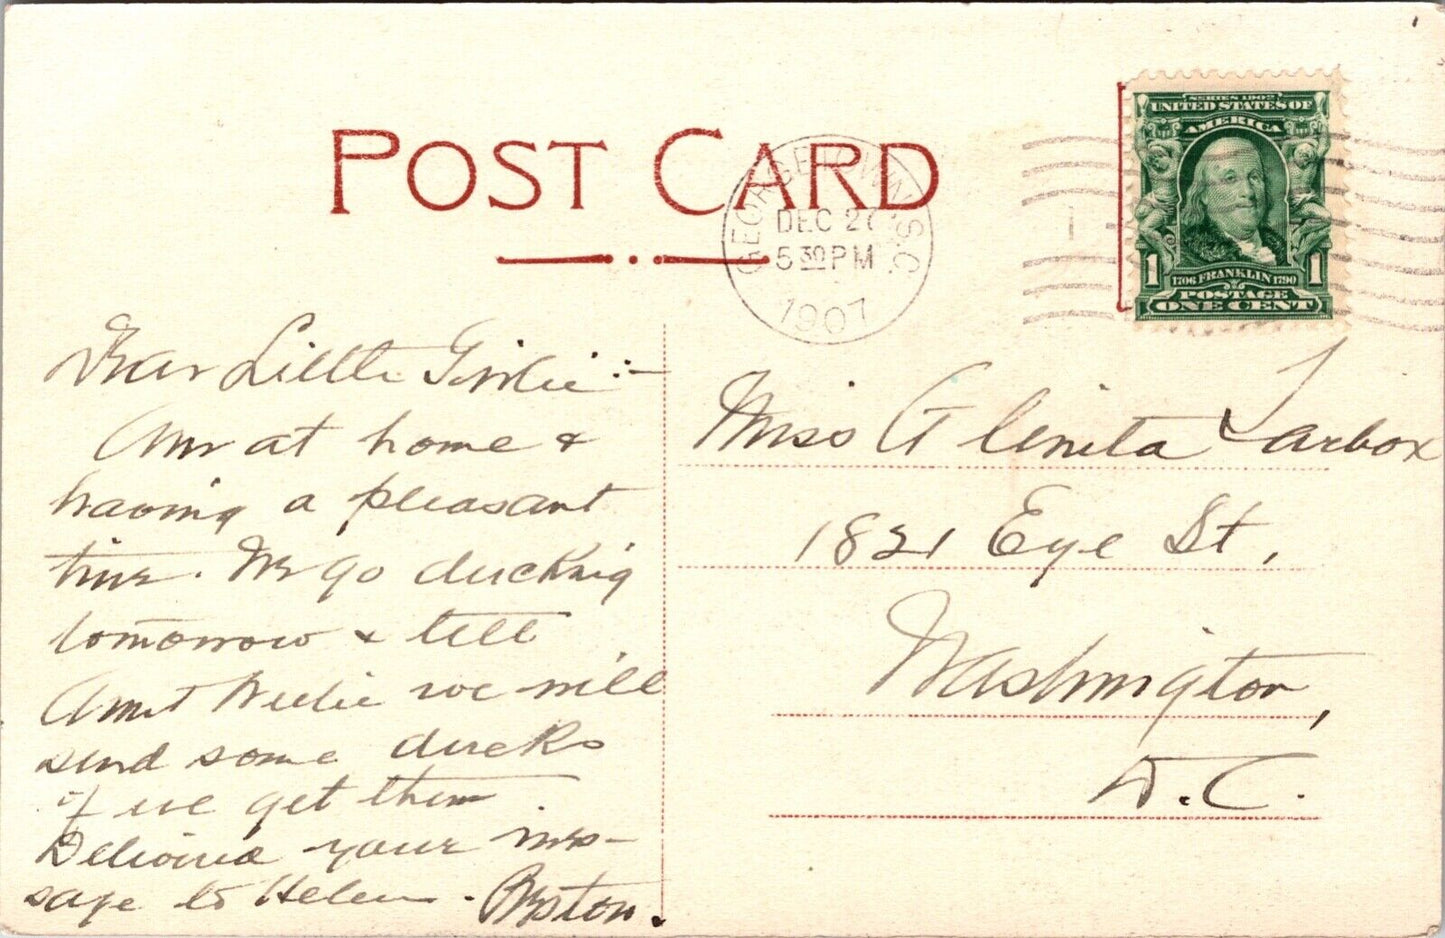 POST CARD
GEORGETOWN, S.C.
DEC 27
5 30 PM
1907
SERIES 1902
UNITED STATES OF
AMERICA
1 1
1706 FRANKLIN 1790
POSTAGE
ONE CENT
Dear Little Girlie:-
Am at home &
having a pleasant
time. We go ducking
tomorrow & tell
Aunt we will
send some ducks
if we get them.
Delivered your mes-
sage to Helen.
Miss Tarbox
1821 Eye St,
Washington,
D.C.